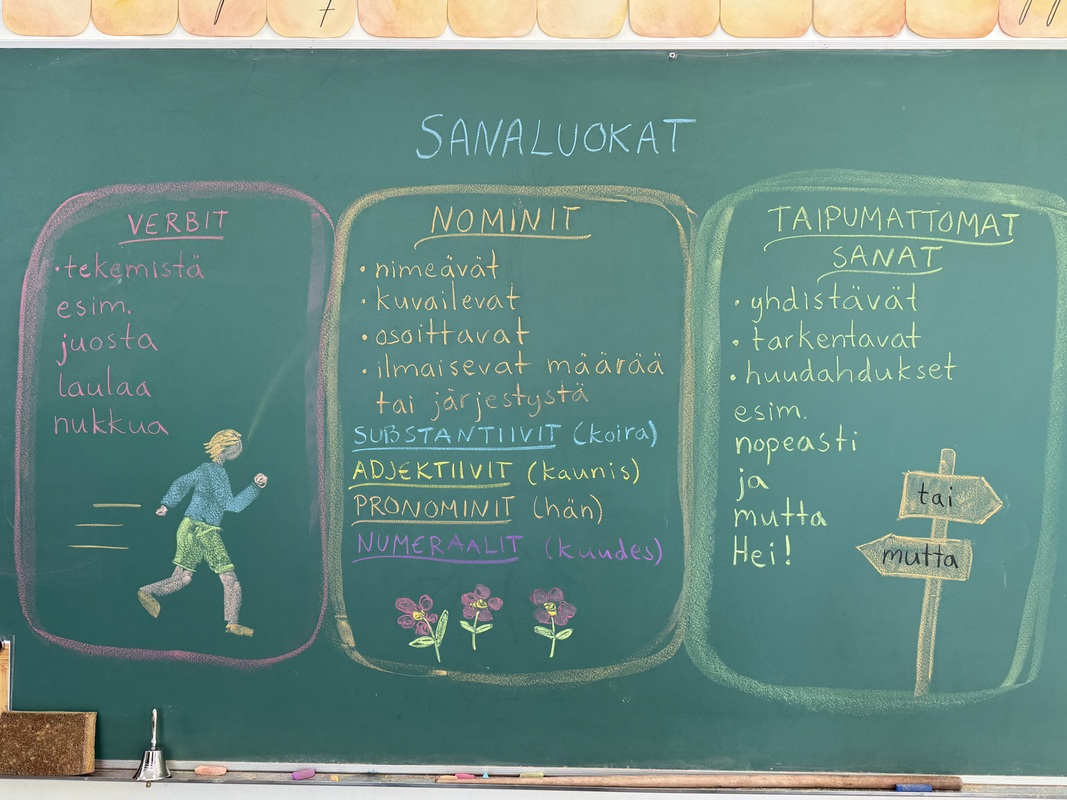 SANALUOKAT
VERBIT
• tekemistä
esim.
juosta
laulaa
nukkua
NOMINIT
• nimeävät
• kuvailevat
• osoittavat
• ilmaisevat määrää
tai järjestystä
SUBSTANTIIVIT (koira)
ADJEKTIIVIT (kaunis)
PRONOMINIT (hän)
NUMERAALIT (kuudes)
TAIPUMATTOMAT
SANAT
• yhdistävät
• tarkentavat
• huudahdukset
esim.
nopeasti
ja
mutta
Hei!
tai
mutta